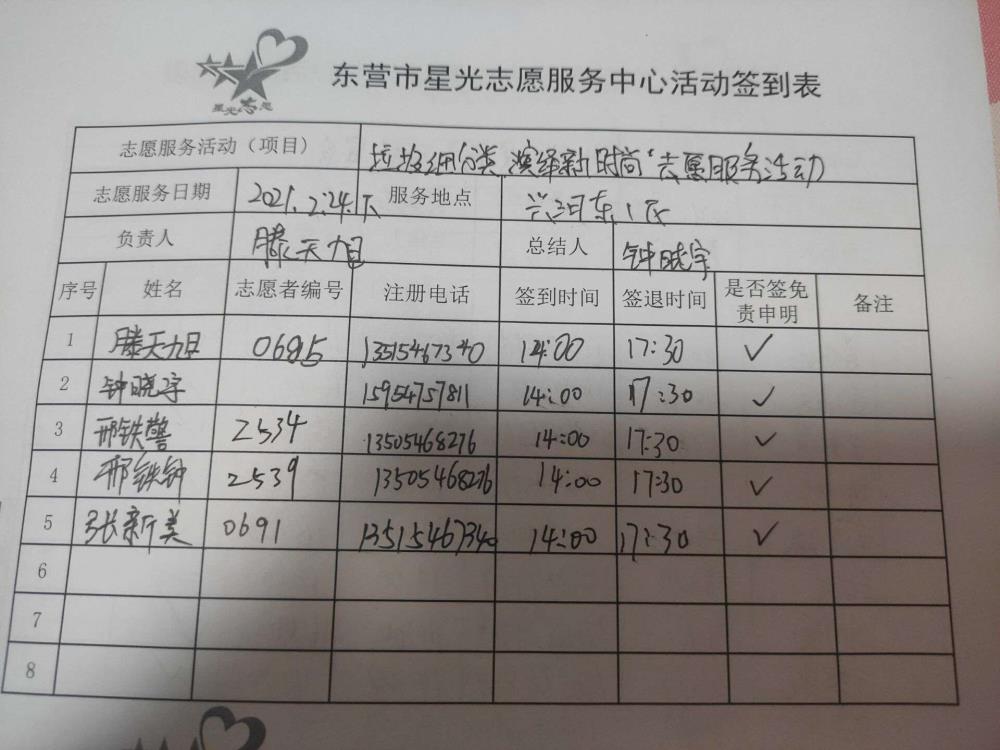 星光志愿
东营市星光志愿服务中心活动签到表
志愿服务活动（项目） 垃圾细分类 演绎新时尚"志愿服务活动
志愿服务日期 2021.2.24.下 服务地点 兴河东1区
负责人 滕天旭 总结人 钟晓宇
序号 姓名 志愿者编号 注册电话 签到时间 签退时间 是否签免责申明 备注
1 滕天旭 0695 13515467340 14:00 17:30 ✓
2 钟晓宇 15954757811 14:00 17:30 ✓
3 邢铁警 2534 13505468276 14:00 17:30 ✓
4 邢铁钟 2539 13505468276 14:00 17:30 ✓
5 张新美 0691 13515467340 14:00 17:30 ✓
6
7
8